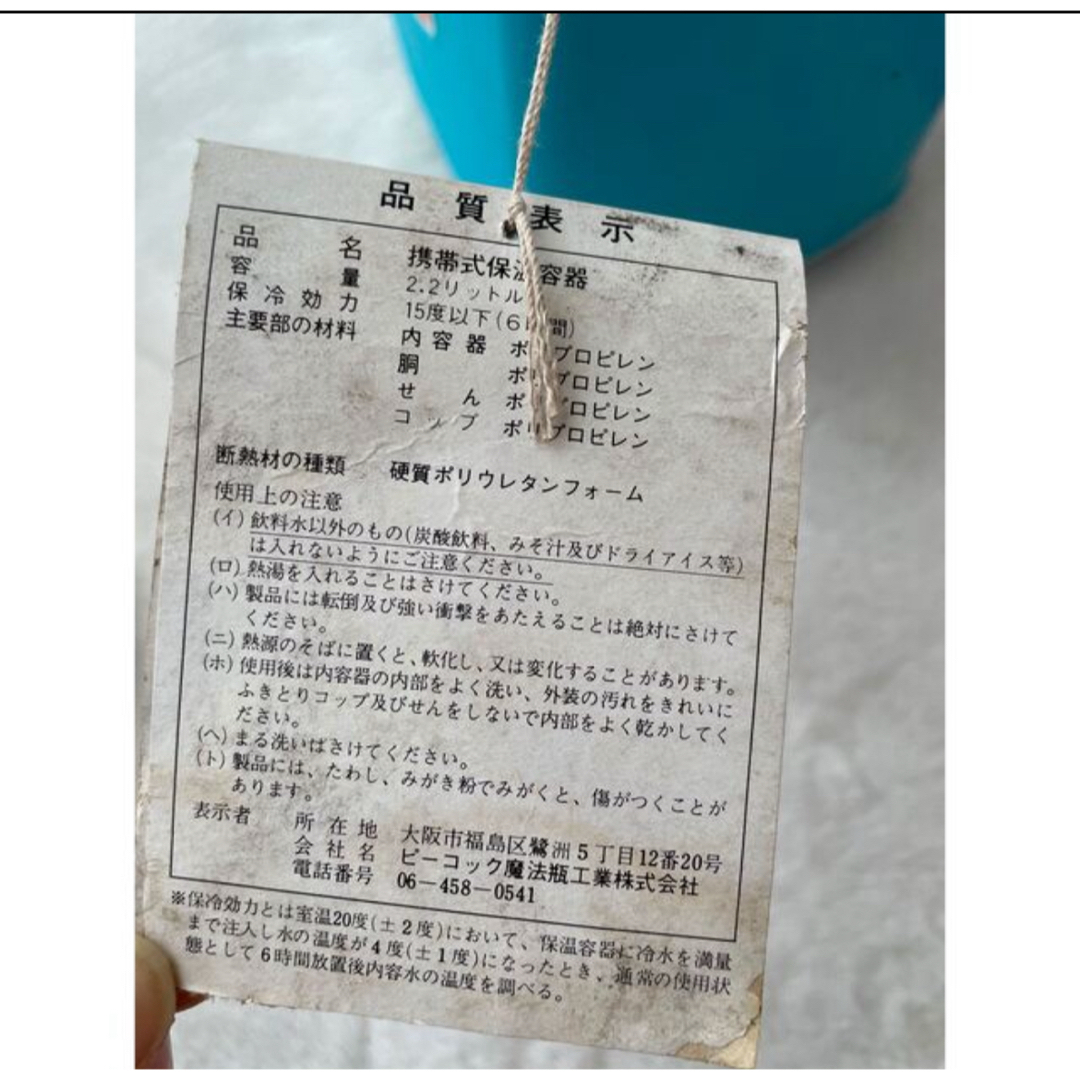 品質表示
品名 携帯式保温容器
容量 2.2リットル
保冷効力 15度以下(6時間)
主要部の材料 内容器 ポリプロピレン
胴 ポリプロピレン
せん ポリプロピレン
コップ ポリプロピレン
断熱材の種類 硬質ポリウレタンフォーム
使用上の注意
(イ) 飲料水以外のもの(炭酸飲料、みそ汁及びドライアイス等)
は入れないようにご注意ください。
(ロ) 熱湯を入れることはさけてください。
(ハ) 製品には転倒及び強い衝撃をあたえることは絶対にさけて
ください。
(ニ) 熱源のそばに置くと、軟化し、又は変化することがあります。
(ホ) 使用後は内容器の内部をよく洗い、外装の汚れをきれいに
ふきとりコップ及びせんをしないで内部をよく乾かしてく
ださい。
(ヘ) まる洗いはさけてください。
(ト) 製品には、たわし、みがき粉でみがくと、傷がつくことが
あります。
表示者 所在地 大阪市福島区鷺洲5丁目12番20号
会社名 ピーコック魔法瓶工業株式会社
電話番号 06-458-0541
※保冷効力とは室温20度(±2度)において、保温容器に冷水を満量
まで注入し水の温度が4度(±1度)になったとき、通常の使用状
態として6時間放置後内容水の温度を調べる。